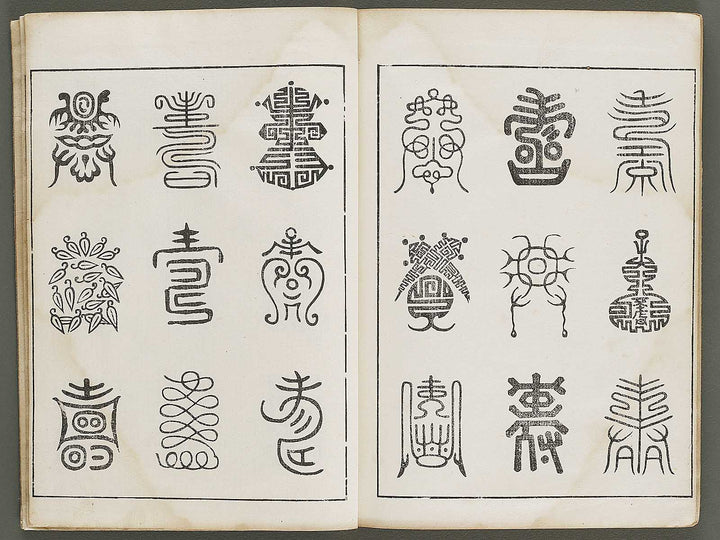 壽壽壽
壽壽壽
壽壽壽
壽壽壽
壽壽壽
壽壽壽